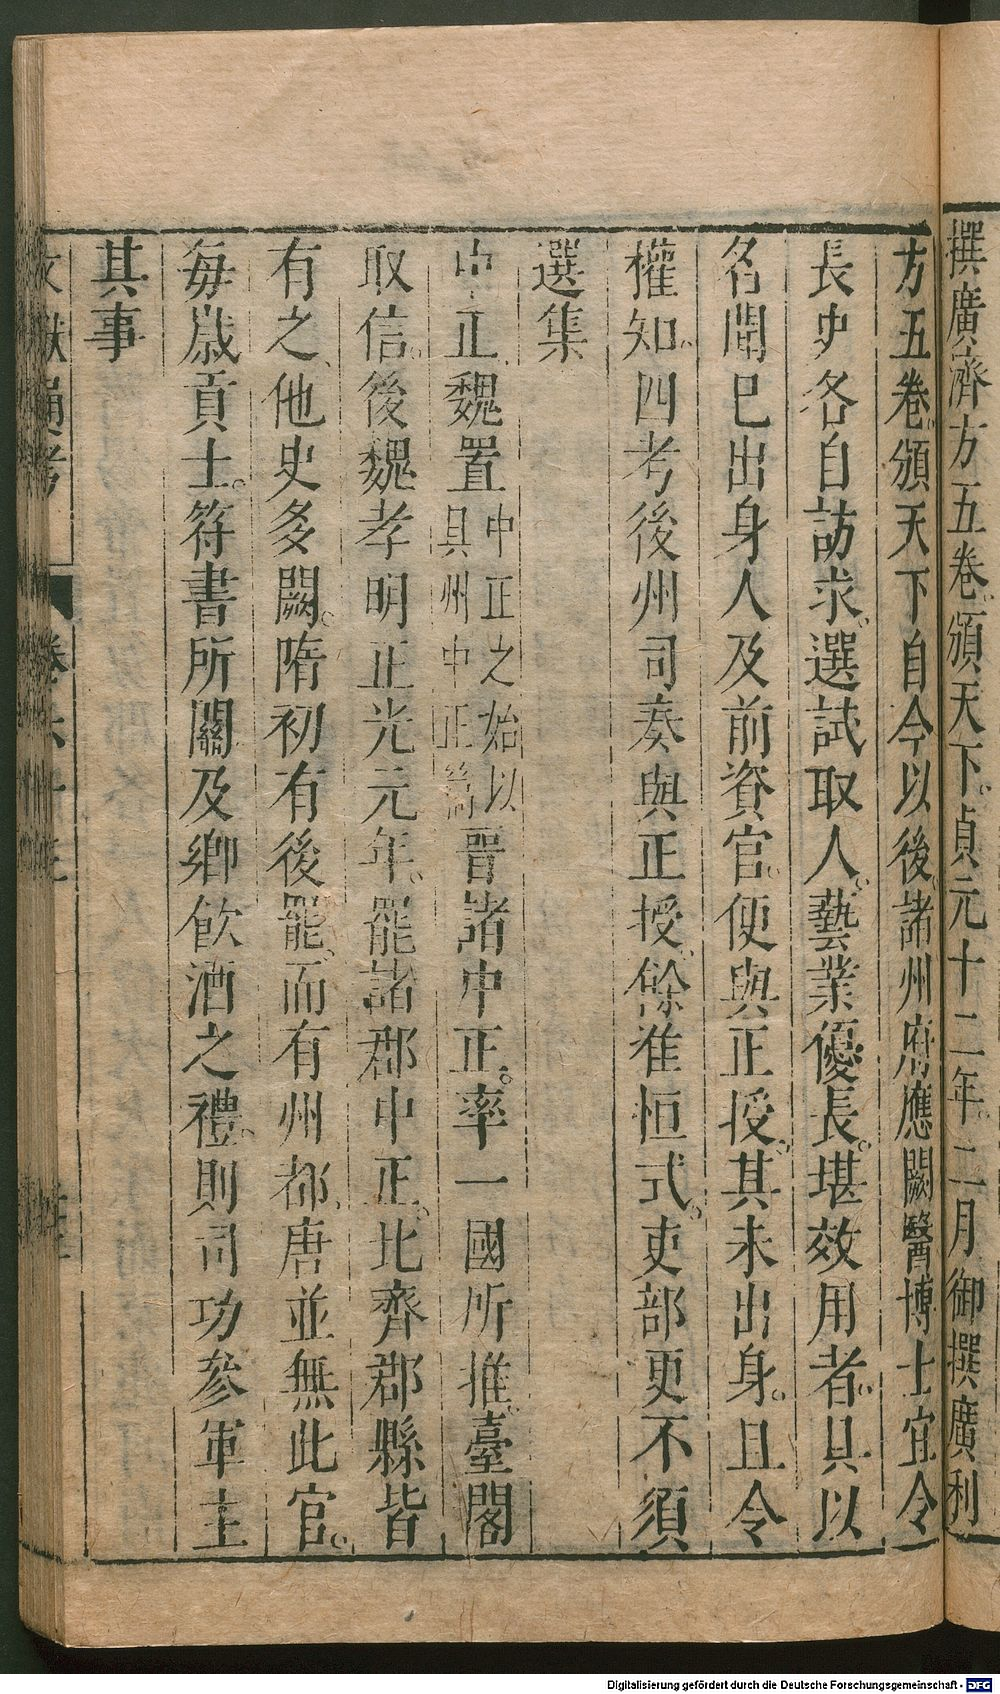 撰廣濟方五卷。頒天下。貞元十二年。二月御撰廣利
方五卷。頒天下自今以後。諸州府應闕醫博士宜令
長史各自訪求。選試取人。藝業優長。堪效用者。具以
名聞巳出身人及前資官。便與正授。其未出身。且令
權知。四考後州司奏與正授。餘准恒式。吏部更不須
選集
中正、魏置中正之始以具州中正爲晉諸中正。率一國所推。臺閣
取信。後魏孝明正光元年。罷諸郡中正。北齊郡縣皆
有之、他史多闕。隋初有後罷、而有州都、唐並無此官。
每歲貢士。符書所關及鄉飲酒之禮。則司功參軍主
其事
文獻通考 卷六十三
Digitalisierung gefördert durch die Deutsche Forschungsgemeinschaft - DFG